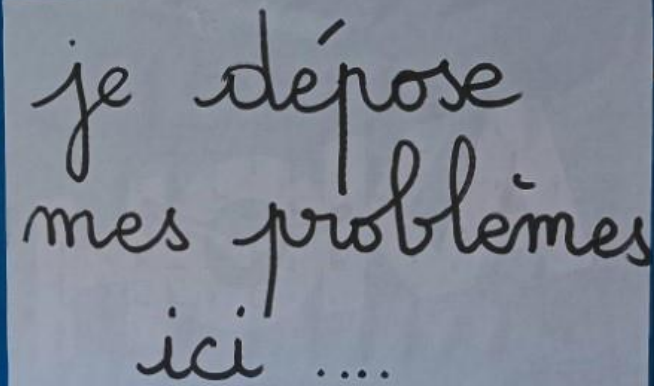 je dépose
mes problèmes
ici ....